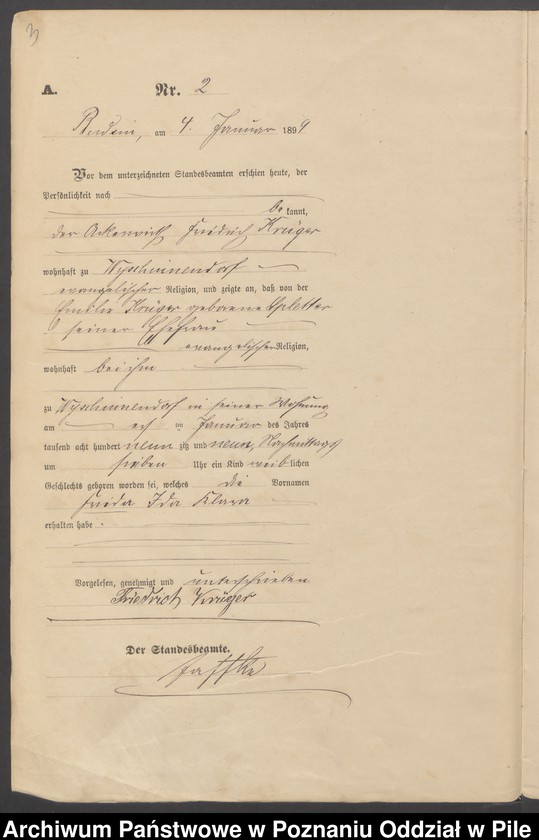 3
A. Nr. 2
am 4. Januar 1899
Vor dem unterzeichneten Standesbeamten erschien heute, der
Persönlichkeit nach
be kannt,
der Ackerwirth Friedrich Krüger
wohnhaft zu
evangelischer Religion, und zeigte an, daß von der
Emilie Krüger geborene Splettter
seiner Ehefrau
evangelischer Religion,
wohnhaft bei ihm
zu in seiner Wohnung
am Januar des Jahres
tausend acht hundert neun zig und neun, Nachmittags
um sieben Uhr ein Kind weib lichen
Geschlechts geboren worden sei, welches die Vornamen
Frieda Ida Klara
erhalten habe.
Vorgelesen, genehmigt und unterschrieben
Friedrich Krüger
Der Standesbeamte.
Archiwum Państwowe w Poznaniu Oddział w Pile